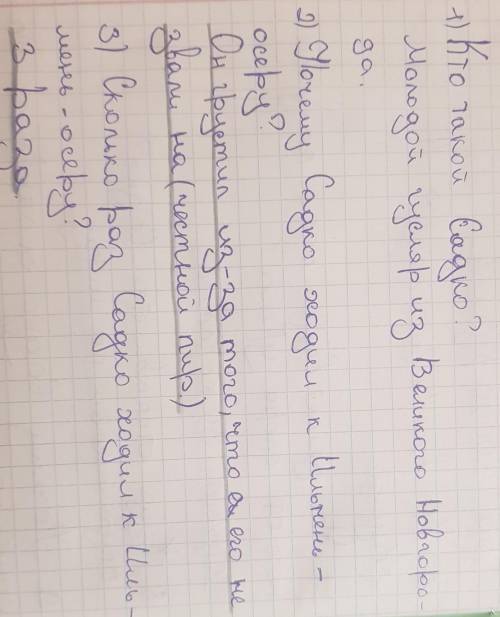 1) Кто такой Садко?
Молодой гусляр из Великого Новгоро-
да.
2) Почему Садко ходил к Ильмень-
осеру?
Он грустил из-за того, что его не
звали на (честной пир.)
3) Сколько раз Садко ходил к Иль-
мень-осеру?
3 раза